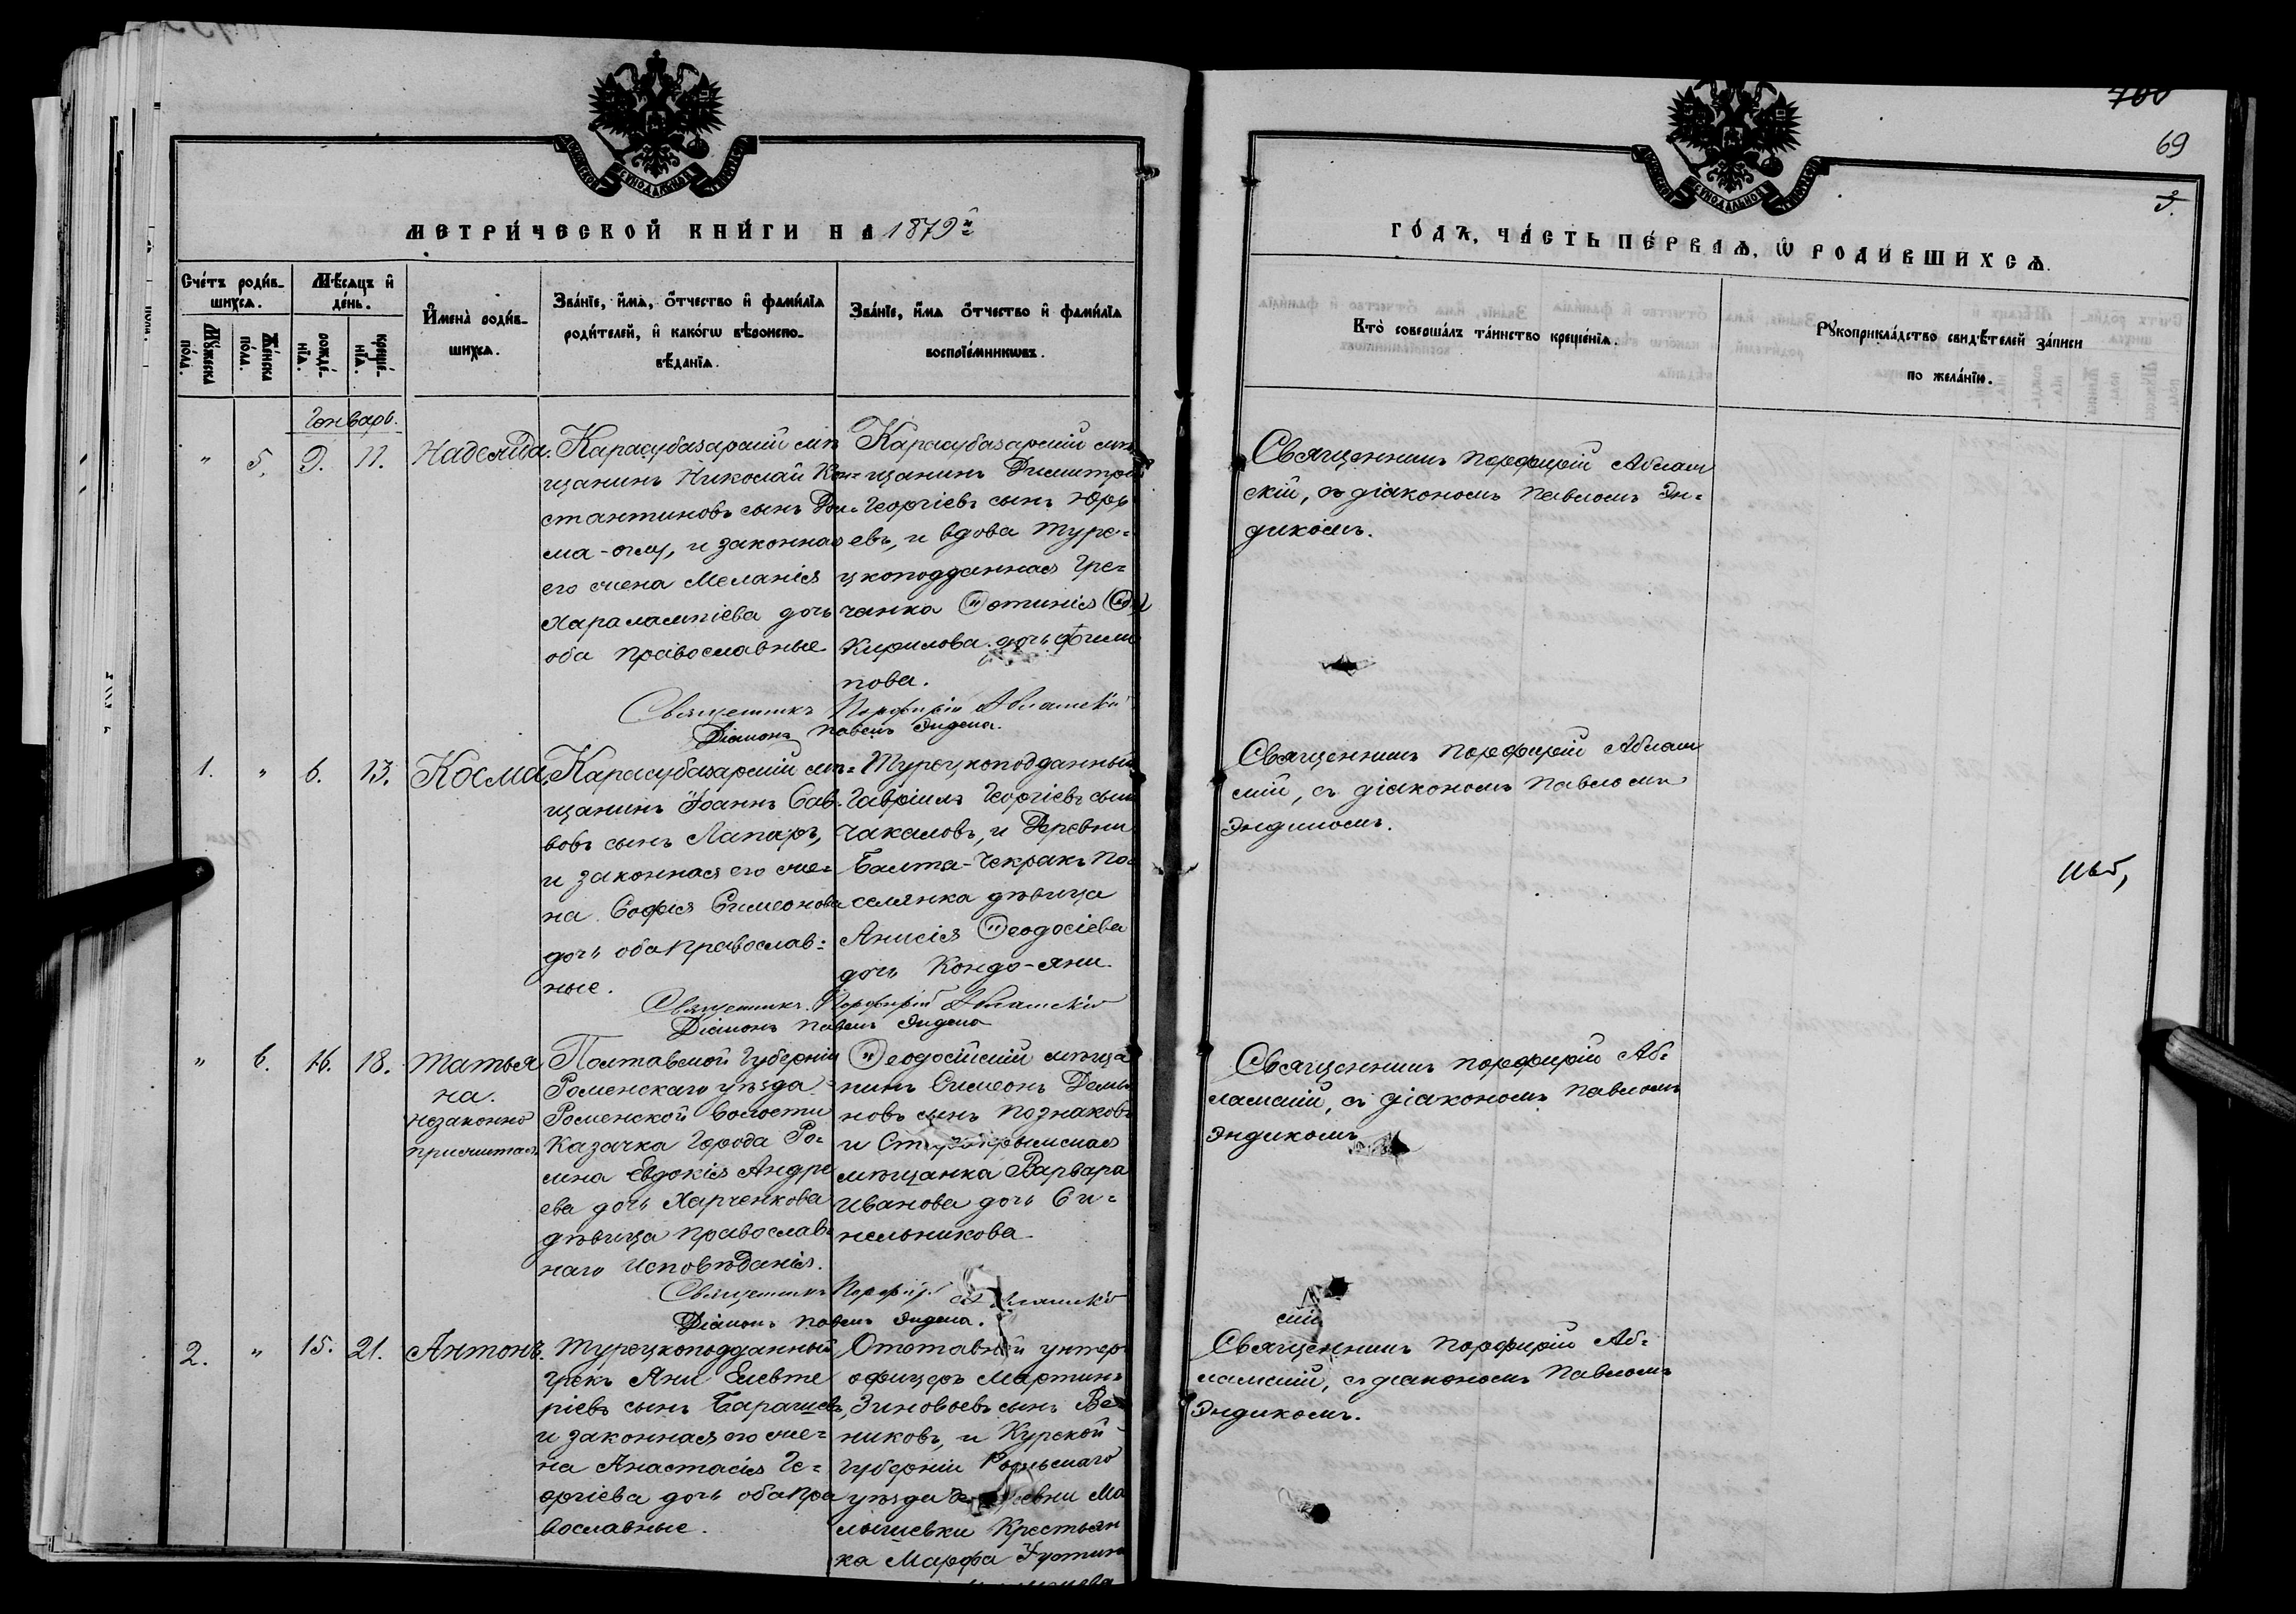 МЕТРИ́ЧЕСКОЙ КНИ́ГИ НА 1879й
Сче́тъ роди́в-
шихся.
Мѣ́сяцъ и
де́нь.
Му́жеска
по́ла.
Же́нска
по́ла.
рожде́-
нїя.
креще́-
нїя.
И҆мена̀ роди́в-
шихся.
Зва́нїе, и҆́мя, ѻ҆́тчество и҆ фами́лїя
роди́телей, и҆ како́гѡ вѣроиспо-
вѣ́данїя.
Зва́нїе, и҆́мя ѻ҆́тчество и҆ фами́лїя
воспрїе́мникѡвъ.
Генварь.
" 5. 9. 11. Надежда.
Карасубазарскій мѣ
щанинъ Николай Кон=
стантиновъ сынъ Дои-
ма-оглу, и законная
его жена Меланія
Харалампіева дочь
оба православные
Карасубазарскій мѣ
щанинъ Димитрій
Георгіевъ сынъ Юрь
евъ, и вдова туре=
цкоподданная Гре=
чанка Ѳотинія
Кирилова дочь Фили
пова.
Священникъ Порфирій Абламскій
Діаконъ Павелъ Эндека.
1. " 6. 13. Косма.
Карасубазарскій мѣ=
щанинъ Іоаннъ Сав-
вовъ сынъ Лапаръ,
и законная его же=
на Софія Симеонова
дочь оба православ=
ные.
Турецкоподданный
Гавріилъ Георгіевъ сынъ
Чакаловъ, и Деревни
Балта-Чекракъ По=
селянка дѣвица
Анисія Ѳеодосіева
дочь Кондо-яни.
Священникъ Порфирій Абламскій
Діаконъ Павелъ Эндека
" 6. 16. 18. Татья
на.
незаконно
прижитая
Полтавской Губерніи
Роменскаго уѣзда
Роменской Волости
Казачка Города Ро=
мна Евдокія Андре
ева дочь Харченкова
дѣвица православ=
наго исповѣданія.
Ѳеодосійскій мѣща
нинъ Симеонъ Демья
новъ сынъ Познаковъ
и Старокрымская
мѣщанка Варвара
Иванова дочь Си=
нельникова.
Священникъ Порфирій Абламскій
Діаконъ Павелъ Эндека.
2. " 15. 21. Антонъ.
Турецкоподданный
Грекъ Яни Елевте
ріевъ сынъ Барачіевъ,
и законная его же=
на Анастасія Ге=
оргіева дочь оба пра
вославные.
Отставной унтер
офицеръ Мартинъ
Зиновьевъ сынъ
никовъ, и Курской
Губерніи Рыльскаго
уѣзда деревни Ма
лышевки Крестьян
ка Марфа Іустин
ГО́ДЪ, ЧА́СТЬ ПЕ́РВАЯ, Ѡ҆ РОДИ́ВШИХСЯ.
700
69
3.
Кто̀ соверша́лъ та́инство креще́нїя.
Рꙋкоприкла́дство свидѣ́телей за́писи
по жела́нїю.
Священникъ Порфирій Аблам
скій, съ діакономъ Павломъ Эн=
дикомъ.
Священникъ Порфирій Аблам
скій, съ діакономъ Павломъ
Эндикомъ.
1165,
Священникъ Порфирій Аб=
ламскій, съ діакономъ Павломъ
Эндикомъ
Священникъ Порфирій Аб=
ламскій, съ діакономъ Павломъ
Эндикомъ.